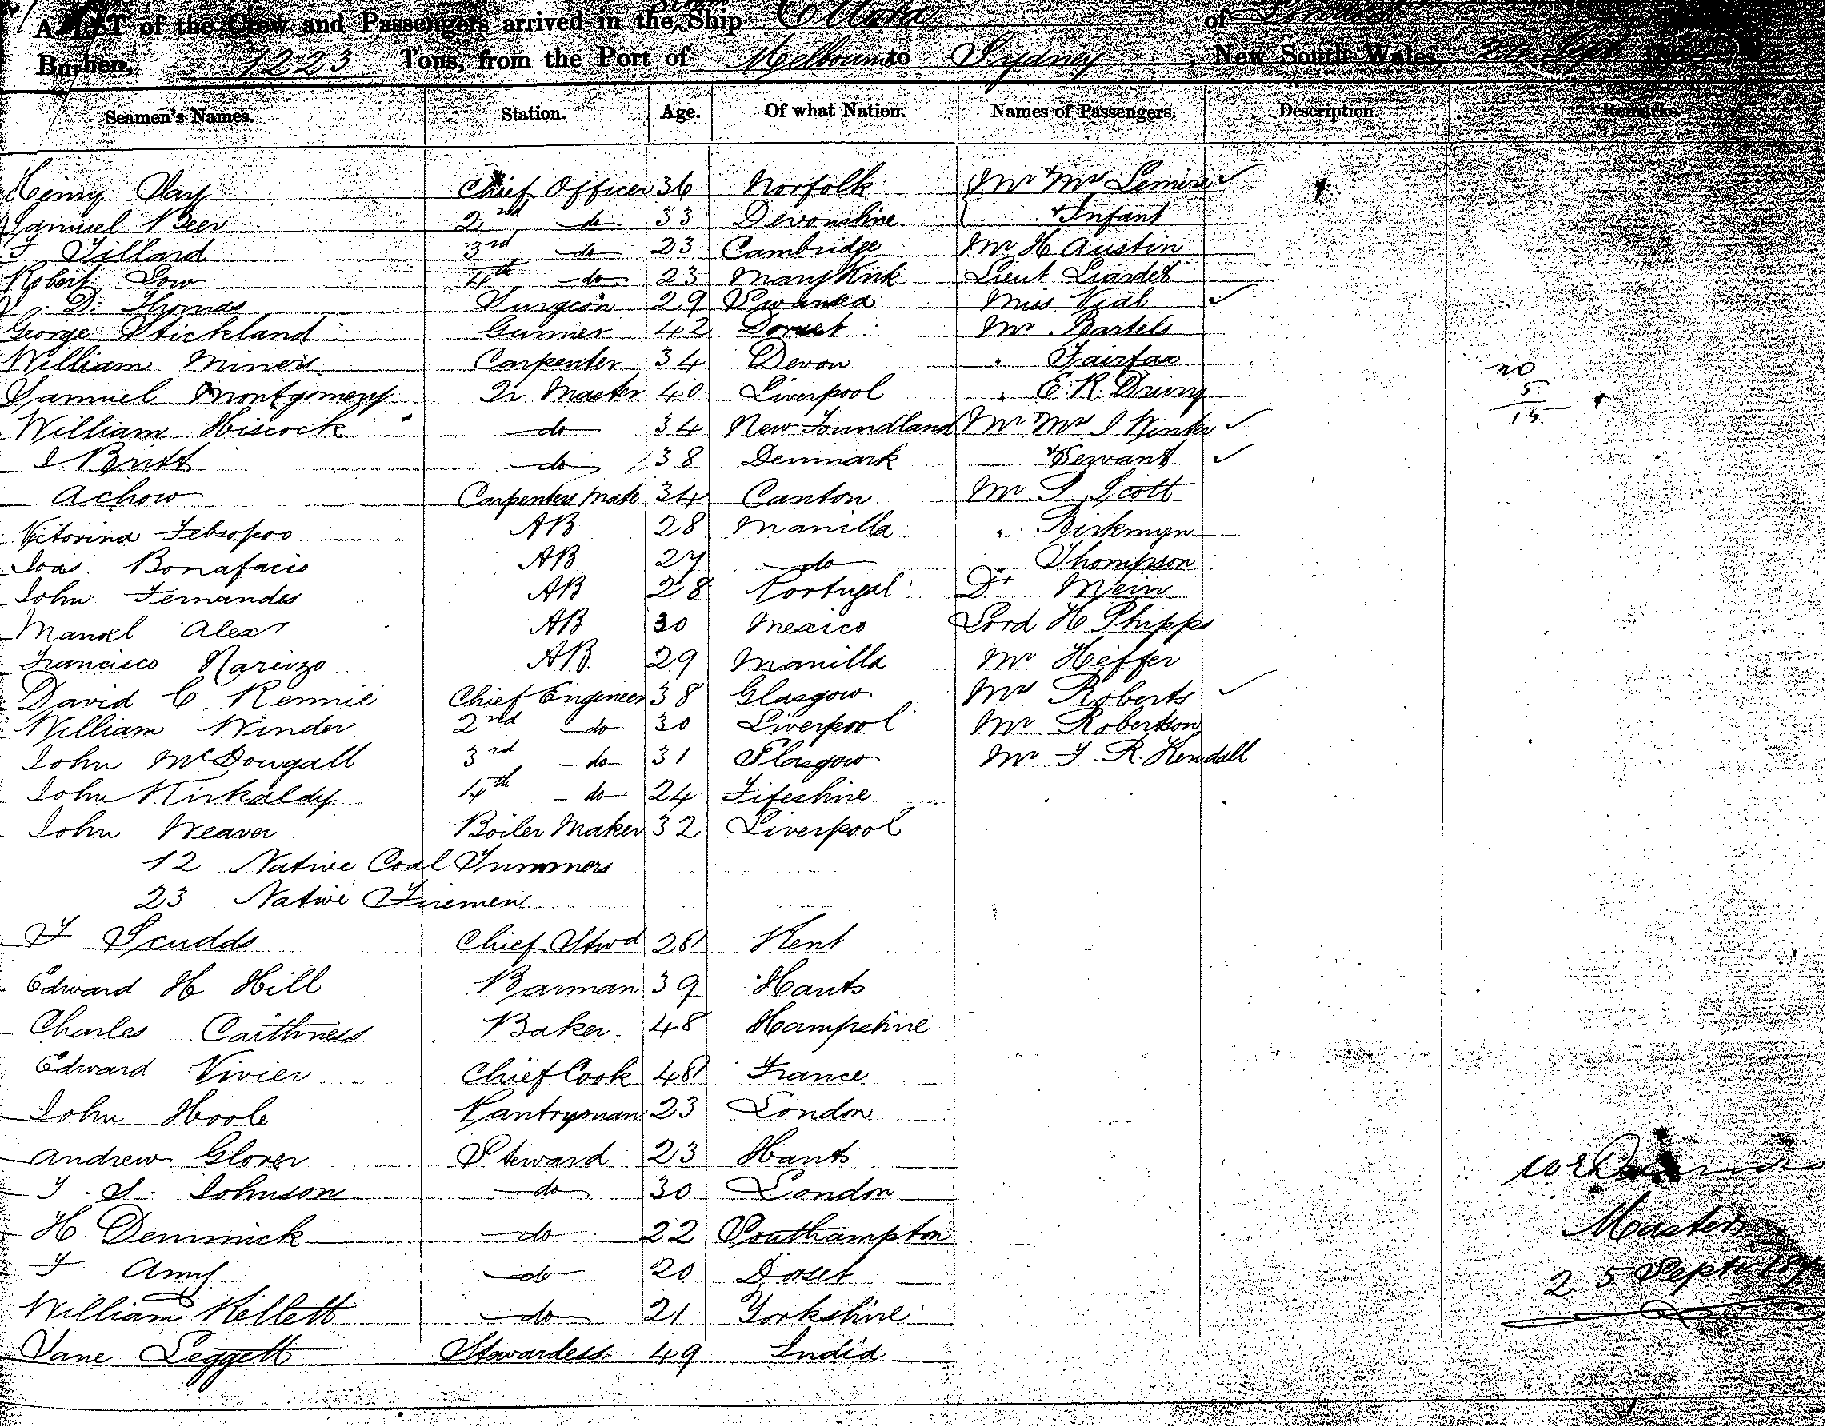 A LIST of the Crew and Passengers arrived in the Ship Ottawa of
Burthen, 1223 Tons, from the Port of Melbourne to Sydney, New South Wales,
Seamen's Names. Station. Age. Of what Nation. Names of Passengers. Description. Remarks.
Henry Chief Officer 36 Norfolk Mr & Mrs
Samuel Beer 2nd do 33 Devonshire & Infant
Tillard 3rd do 23 Cambridge Mr H Austin
Robert Low 4th do 23 Lieut Liardet
D. Thomas Surgeon 29 Swansea Miss Vial
George Stickland Gunner 42 Dorset Mr Bartels
William Minors Carpenter 34 Devon " Fairfax
Samuel Montgomery Qr Master 40 Liverpool " E. R. Drury
William Hiscock do 34 New Foundland Mr Mrs
I Britt do 38 Denmark & Servant
Achow Carpenters Mate 34 Canton Mr Scott
AB 28 Manilla " Birkmyn
Bonafacio AB 27 do Thompson
John Fernandes AB 28 Portugal Dr Mein
Manoel Alex AB 30 Mexico Lord H Phipps
Francisco Narcizo AB 29 Manilla Mr Heffer
David C Rennie Chief Engineer 38 Glasgow Mrs Roberts
William Winder 2nd do 30 Liverpool Mr Robertson
John McDougall 3rd do 31 Glasgow Mr F. R. Kendall
John Kirkaldy 4th do 24 Fifeshire
John Weaver Boiler Maker 32 Liverpool
12 Native Coal Trimmers
23 Native Firemen
F Scudds Chief Stwd 28 Kent
Edward H Hill Barman 39 Hants
Charles Caithness Baker 48 Hampshire
Edward Vivier Chief Cook 48 France
John Hoole Pantryman 23 London
Andrew Glover Steward 23 Hants
Johnson do 30 London
H Demmick do 22 Southampton
F Amy do 20 Doset
William Kellett do 21 Yorkshire
Jane Leggett Stewardess 49 India
Master
25 Sept